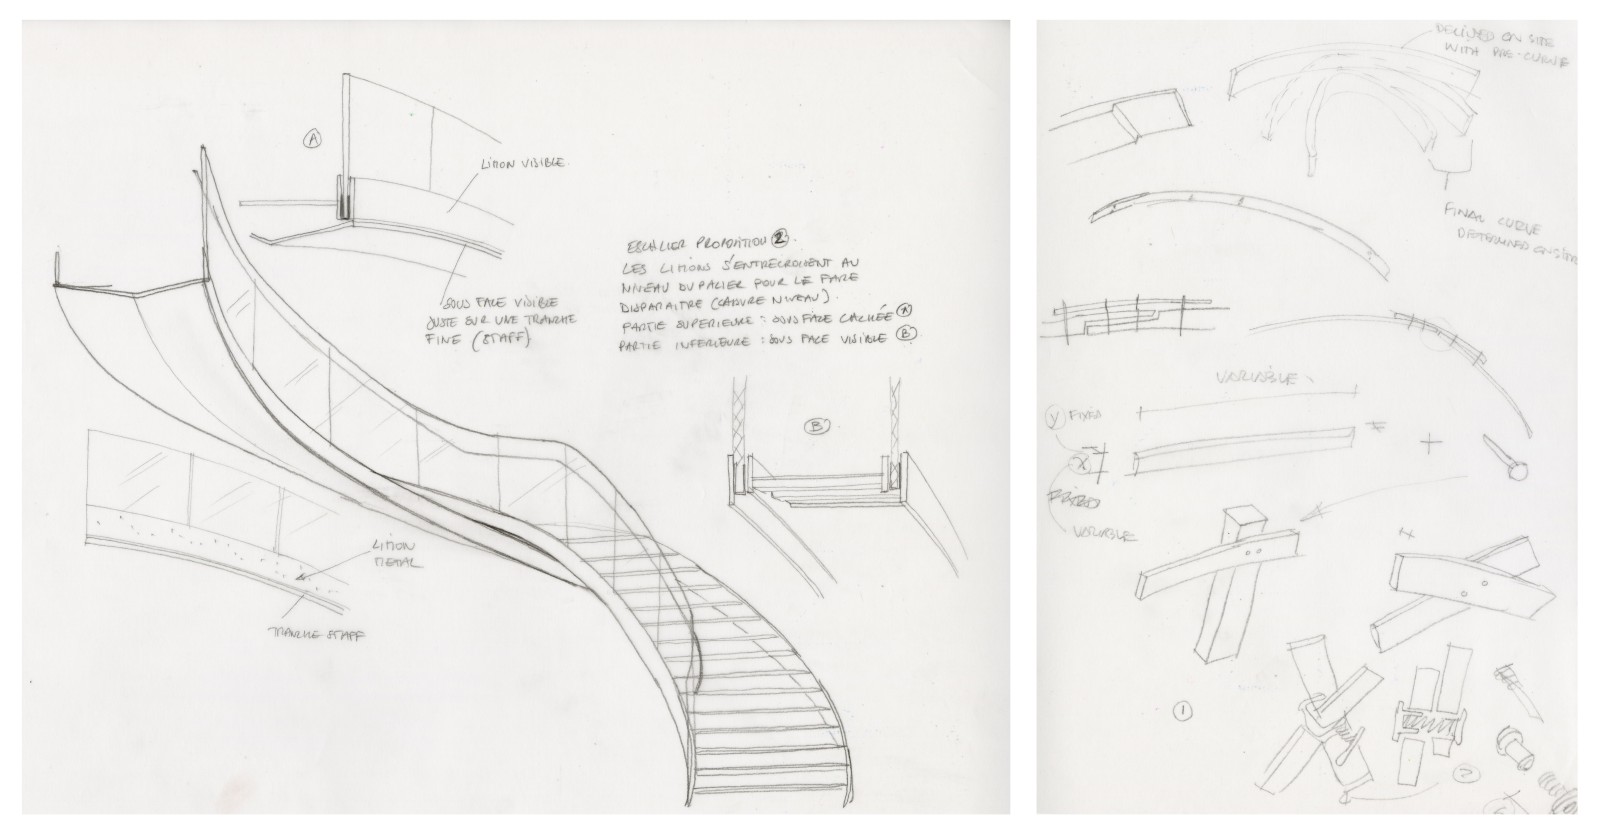 A
LIMON VISIBLE.
SOUS FACE VISIBLE
JUSTE SUR UNE TRANCHE
FINE (STAFF)
ESCALIER PROPOSITION 2.
LES LIMONS S'ENTRECROISENT AU
NIVEAU DU PALIER POUR LE FAIRE
DISPARAITRE (CADAVRE NIVEAU).
PARTIE SUPERIEURE : SOUS FACE CACHÉE A
PARTIE INFERIEURE : SOUS FACE VISIBLE B
B
LIMON
METAL
TRANCHE STAFF
DELIVERED ON SITE
WITH PRE-CURVE
FINAL CURVE
DETERMINED ON SITE
VARIABLE
Y FIXED
X
VARIABLE
1
2